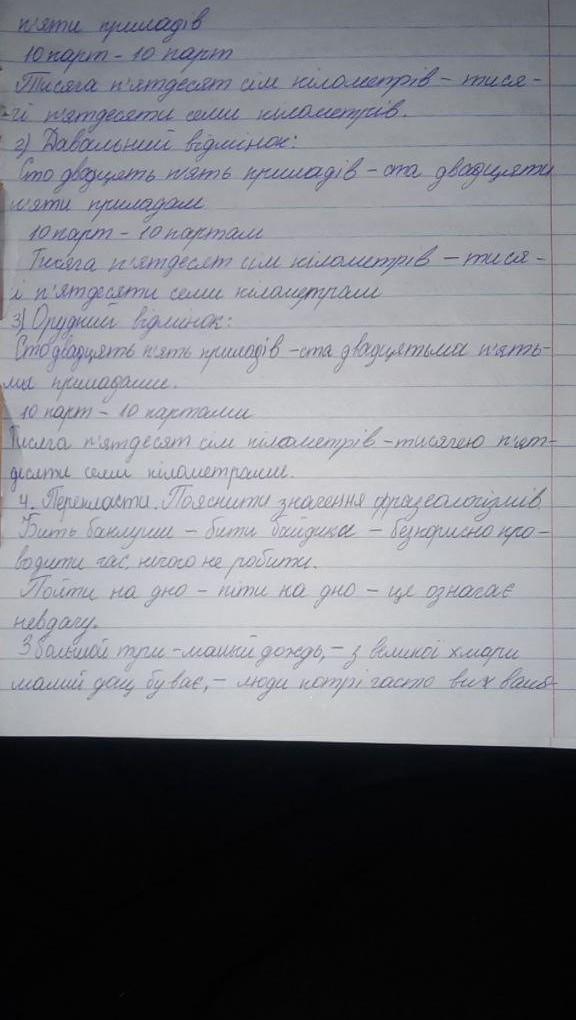 п'яти приладів
10 парт - 10 парт
Тисяга п'ятдесят сім кілометрів - тися-
гі п'ятдесяти семи кілометрів.
2) Давальний відмінок:
Сто двадцять п'ять приладів - ста двадцяти
п'яти приладам
10 парт - 10 партам
Тисяга п'ятдесят сім кілометрів - тися-
і п'ятдесяти семи кілометрам
3) Орудний відмінок:
Сто двадцять п'ять приладів - ста двадцятьма п'ять-
ма приладами.
10 парт - 10 партами
Тисяга п'ятдесят сім кілометрів - тисягею п'ят-
десяти семи кілометрами.
4. Перекласти. Пояснити значення фразеологізмів
Бить баклуши - бити байдики - безкорисно про-
водити час, нічого не робити.
Пойти на дно - піти на дно - це означає
невдачу.
З большой тучи - малый дождь, - з великої хмари
малий дощ буває, - люди котрі часто